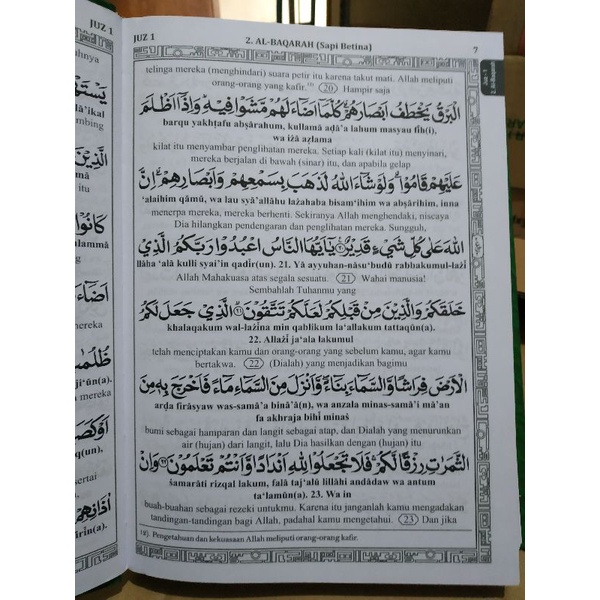 JUZ 1
2. AL-BAQARAH (Sapi Betina)
7
Juz - 1
2. Al-Baqarah
telinga mereka (menghindari) suara petir itu karena takut mati. Allah meliputi
orang-orang yang kafir. (20) Hampir saja
الْبَرْقُ يَخْطَفُ اَبْصَارَهُمْ كُلَّمَآ اَضَاۤءَ لَهُمْ مَّشَوْا فِيْهِ وَاِذَآ اَظْلَمَ
barqu yakhṭafu abṣārahum, kullamā aḍā'a lahum masyau fīh(i),
wa iżā aẓlama
kilat itu menyambar penglihatan mereka. Setiap kali (kilat itu) menyinari,
mereka berjalan di bawah (sinar) itu, dan apabila gelap
عَلَيْهِمْ قَامُوْا وَلَوْ شَاۤءَ اللّٰهُ لَذَهَبَ بِسَمْعِهِمْ وَاَبْصَارِهِمْ اِنَّ
'alaihim qāmū, wa lau syā'allāhu lażahaba bisam'ihim wa abṣārihim, inna
menerpa mereka, mereka berhenti. Sekiranya Allah menghendaki, niscaya
Dia hilangkan pendengaran dan penglihatan mereka. Sungguh,
اللّٰهَ عَلٰى كُلِّ شَيْءٍ قَدِيْرٌ ٢٠ يٰٓاَيُّهَا النَّاسُ اعْبُدُوْا رَبَّكُمُ الَّذِيْ
llāha 'alā kulli syai'in qadīr(un). 21. Yā ayyuhan-nāsu'budū rabbakumul-lażī
Allah Mahakuasa atas segala sesuatu. (21) Wahai manusia!
Sembahlah Tuhanmu yang
خَلَقَكُمْ وَالَّذِيْنَ مِنْ قَبْلِكُمْ لَعَلَّكُمْ تَتَّقُوْنَ ٢١ الَّذِيْ جَعَلَ لَكُمُ
khalaqakum wal-lażīna min qablikum la'allakum tattaqūn(a).
22. Allażī ja'ala lakumul
telah menciptakan kamu dan orang-orang yang sebelum kamu, agar kamu
bertakwa. (22) (Dialah) yang menjadikan bagimu
الْاَرْضَ فِرَاشًا وَّالسَّمَاۤءَ بِنَاۤءً وَّاَنْزَلَ مِنَ السَّمَاۤءِ مَاۤءً فَاَخْرَجَ بِهٖ مِنَ
arḍa firāsyaw was-samā'a binā'ā(n), wa anzala minas-samā'i mā'an
fa akhraja bihī minaś
bumi sebagai hamparan dan langit sebagai atap, dan Dialah yang menurunkan
air (hujan) dari langit, lalu Dia hasilkan dengan (hujan) itu
الثَّمَرٰتِ رِزْقًا لَّكُمْ فَلَا تَجْعَلُوْا لِلّٰهِ اَنْدَادًا وَّاَنْتُمْ تَعْلَمُوْنَ ٢٢ وَاِنْ
śamarāti rizqal lakum, falā taj'alū lillāhi andādaw wa antum
ta'lamūn(a). 23. Wa in
buah-buahan sebagai rezeki untukmu. Karena itu janganlah kamu mengadakan
tandingan-tandingan bagi Allah, padahal kamu mengetahui. (23) Dan jika
18). Pengetahuan dan kekuasaan Allah meliputi orang-orang kafir.